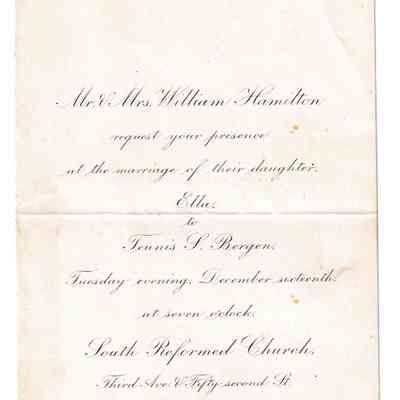 Mr. & Mrs. William Hamilton
request your presence
at the marriage of their daughter,
Ella,
to
Teunis S. Bergen,
Tuesday evening, December sixteenth,
at seven o'clock,
South Reformed Church,
Third Ave. & Fifty second St.